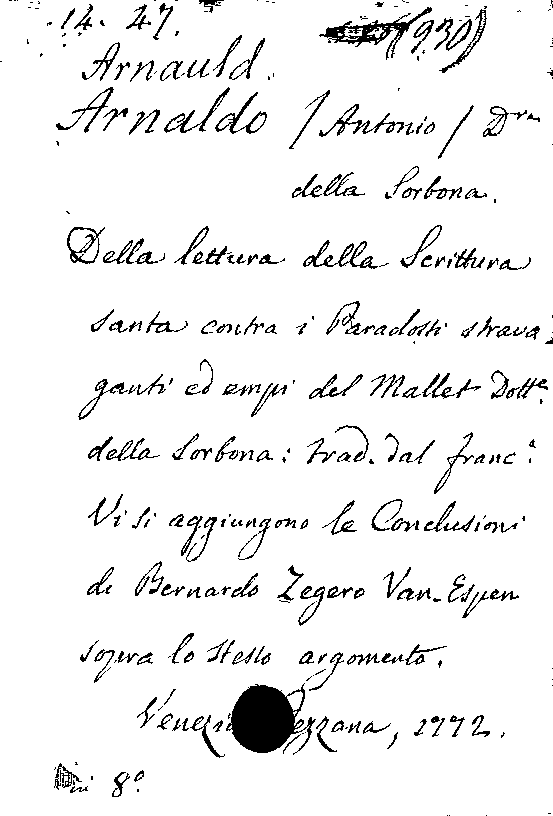 14. 47. (930)
Arnauld.
Arnaldo / Antonio / Dre
della Sorbona.
Della lettura della Scrittura
santa contra i Paradossi strava-
ganti ed empi del Mallet Dotte
della Sorbona: trad. dal franc.e
Vi si aggiungono le Conclusioni
di Bernardo Zegero Van-Espen
sopra lo stesso argomento.
Venezia Pezzana, 1772.
in 8°